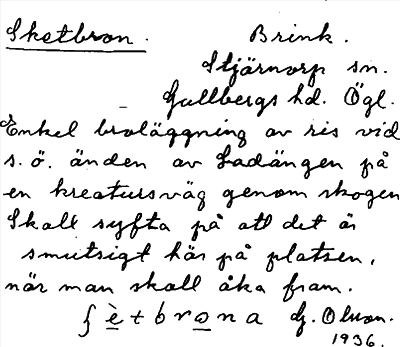 Sketbron. Brink.
Stjärnorp sn.
Gullbergs hd. Ögl.
Enkel broläggning av ris vid
s. ö. änden av Ladängen på
en kreatursväg genom skogen
Skall syfta på att det är
smutsigt här på platsen,
när man skall åka fram.
ʃètbrona G. Olson.
1936.